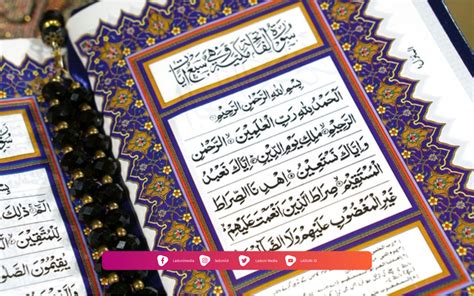 سورة الفاتحة مكية وهي سبع آيات
بِسْمِ اللهِ الرَّحْمٰنِ الرَّحِيْمِ
اَلْحَمْدُ لِلّٰهِ رَبِّ الْعٰلَمِيْنَ الرَّحْمٰنِ
الرَّحِيْمِ مٰلِكِ يَوْمِ الدِّيْنِ اِيَّاكَ نَعْبُدُ
وَاِيَّاكَ نَسْتَعِيْنُ اِهْدِنَا الصِّرَاطَ
الْمُسْتَقِيْمَ صِرَاطَ الَّذِيْنَ اَنْعَمْتَ عَلَيْهِمْ
غَيْرِ الْمَغْضُوْبِ عَلَيْهِمْ وَلَا الضَّالِّيْنَ
الٓمّٓ ذٰلِكَ
لِلْمُتَّقِيْنَ
يُقِيْمُوْنَ
Ladunimedia ladunid Laduni Media LADUNI.ID